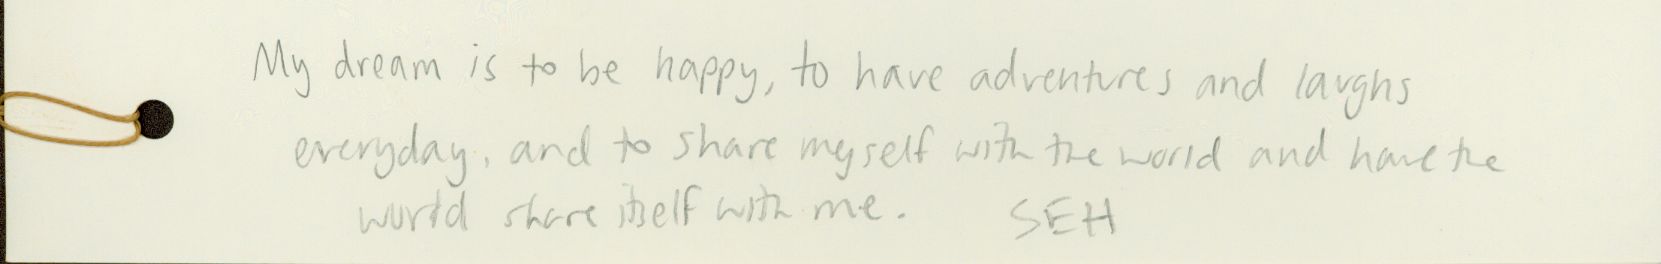 My dream is to be happy, to have adventures and laughs
everyday, and to share myself with the world and have the
world share itself with me. SEH